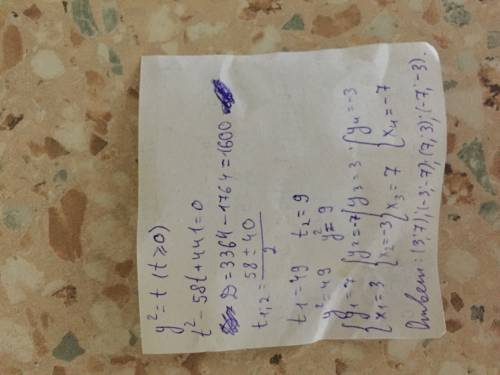 y² = t (t ≥ 0)
t² - 58t + 441 = 0
D = 3364 - 1764 = 1600
t₁,₂ = (58 ± 40) / 2
t₁ = 49 t₂ = 9
y² = 49 y² = 9
{ y₁ = 7 { y₂ = -7 { y₃ = 3 { y₄ = -3
{ x₁ = 3 { x₂ = -3 { x₃ = 7 { x₄ = -7
Ответ: (3; 7); (-3; -7); (7; 3); (-7; -3).